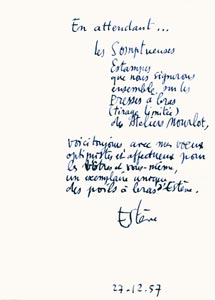 En attendant...
les Somptueuses
Estampes
que nous signerons
ensemble, sur les
Presses à bras
(tirage limité)
des Ateliers Mourlot,
voici toujours avec mes vœux
optimistes et affectueux pour
les vôtres et vous-même,
un exemplaire unique
des poils à bras d'Estève.
Estève
27-12.57